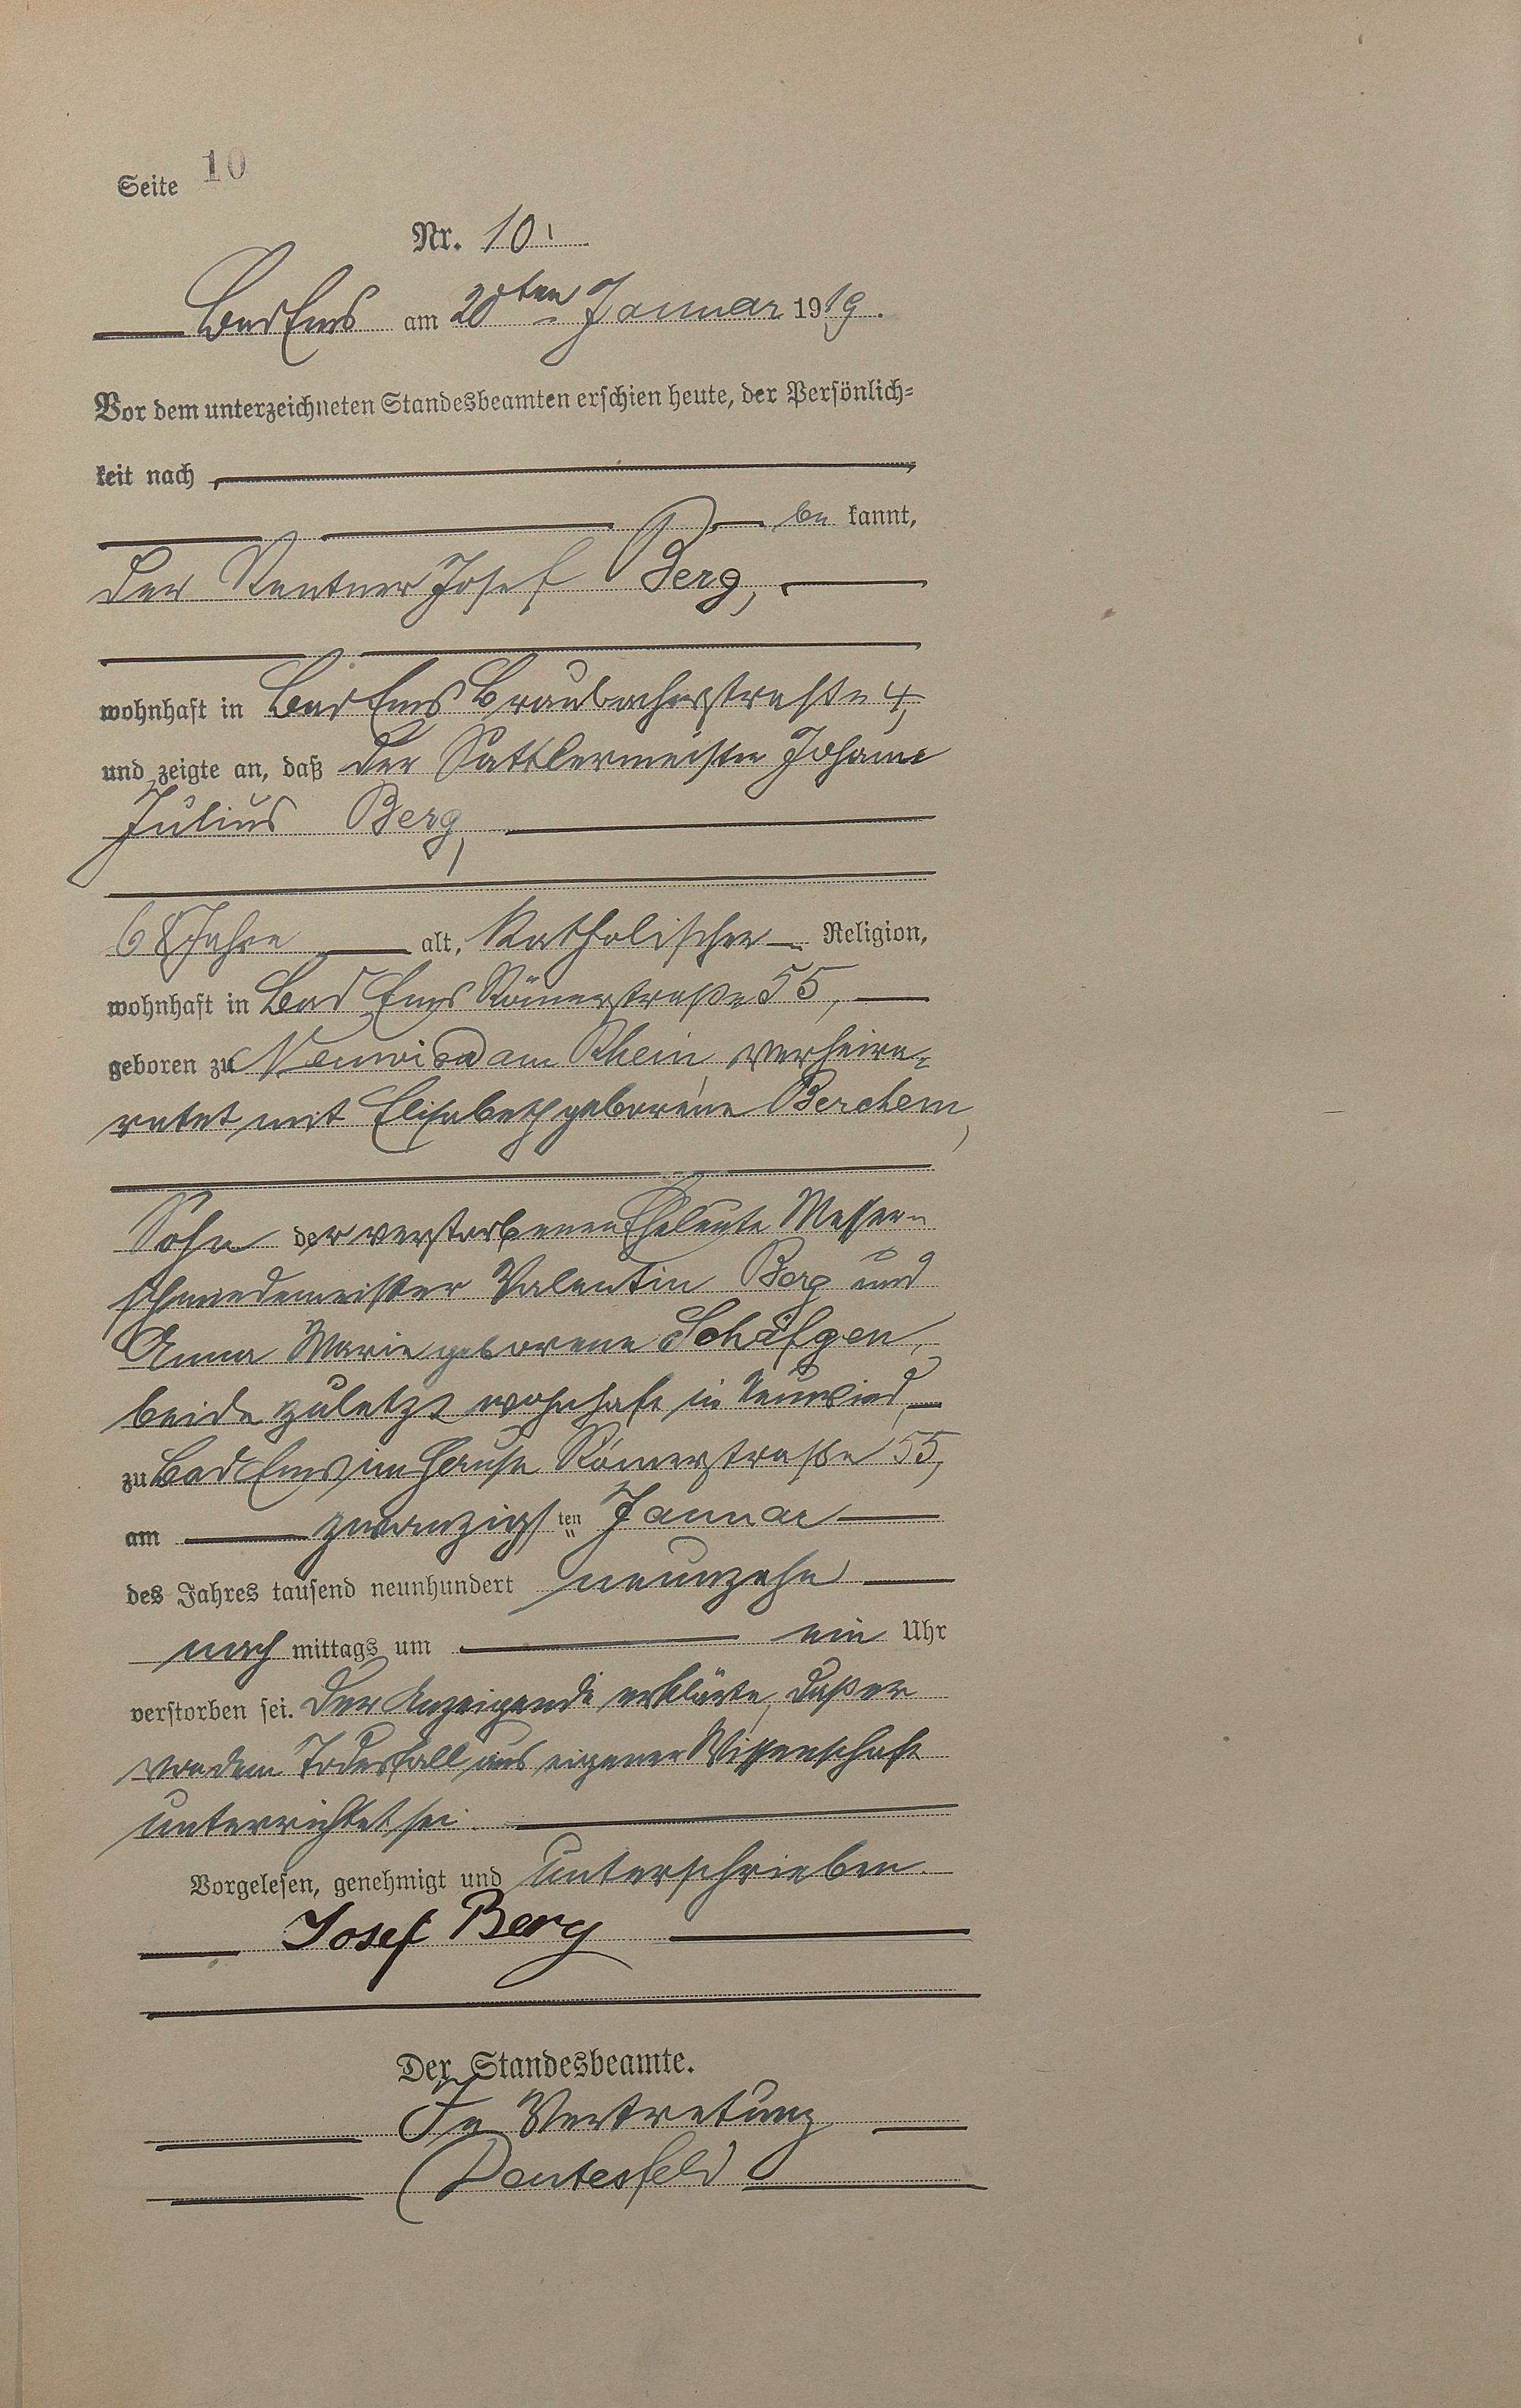 Seite 10
Nr. 10.
Bad Ems am 20ten Januar 1919.
Vor dem unterzeichneten Standesbeamten erschien heute, der Persönlich-
keit nach
be kannt,
der Rentner Josef Berg,
wohnhaft in Bad Ems Braubacherstraße 4,
und zeigte an, daß der Sattlermeister Johann
Julius Berg,
68 Jahre alt, Katholischer Religion,
wohnhaft in Bad Ems Römerstraße 55,
geboren zu Neuwied am Rhein, verheira-
ratet mit Elisabeth geborene Berchem,
Sohn der verstorbenen Eheleute Messer-
schmiedemeister Valentin Berg und
Anna Marie geborene Schäfgen,
beide zuletzt wohnhaft in Neuwied,
zu Bad Ems, im Hause Römerstraße 55,
am zwanzigsten Januar
des Jahres tausend neunhundert neunzehn
nach mittags um ein Uhr
verstorben sei. Der Anzeigende erklärte, daß er
von dem Todesfall aus eigener Wissenschaft
unterrichtet sei.
Vorgelesen, genehmigt und unterschrieben.
Josef Berg
Der Standesbeamte.
In Vertretung